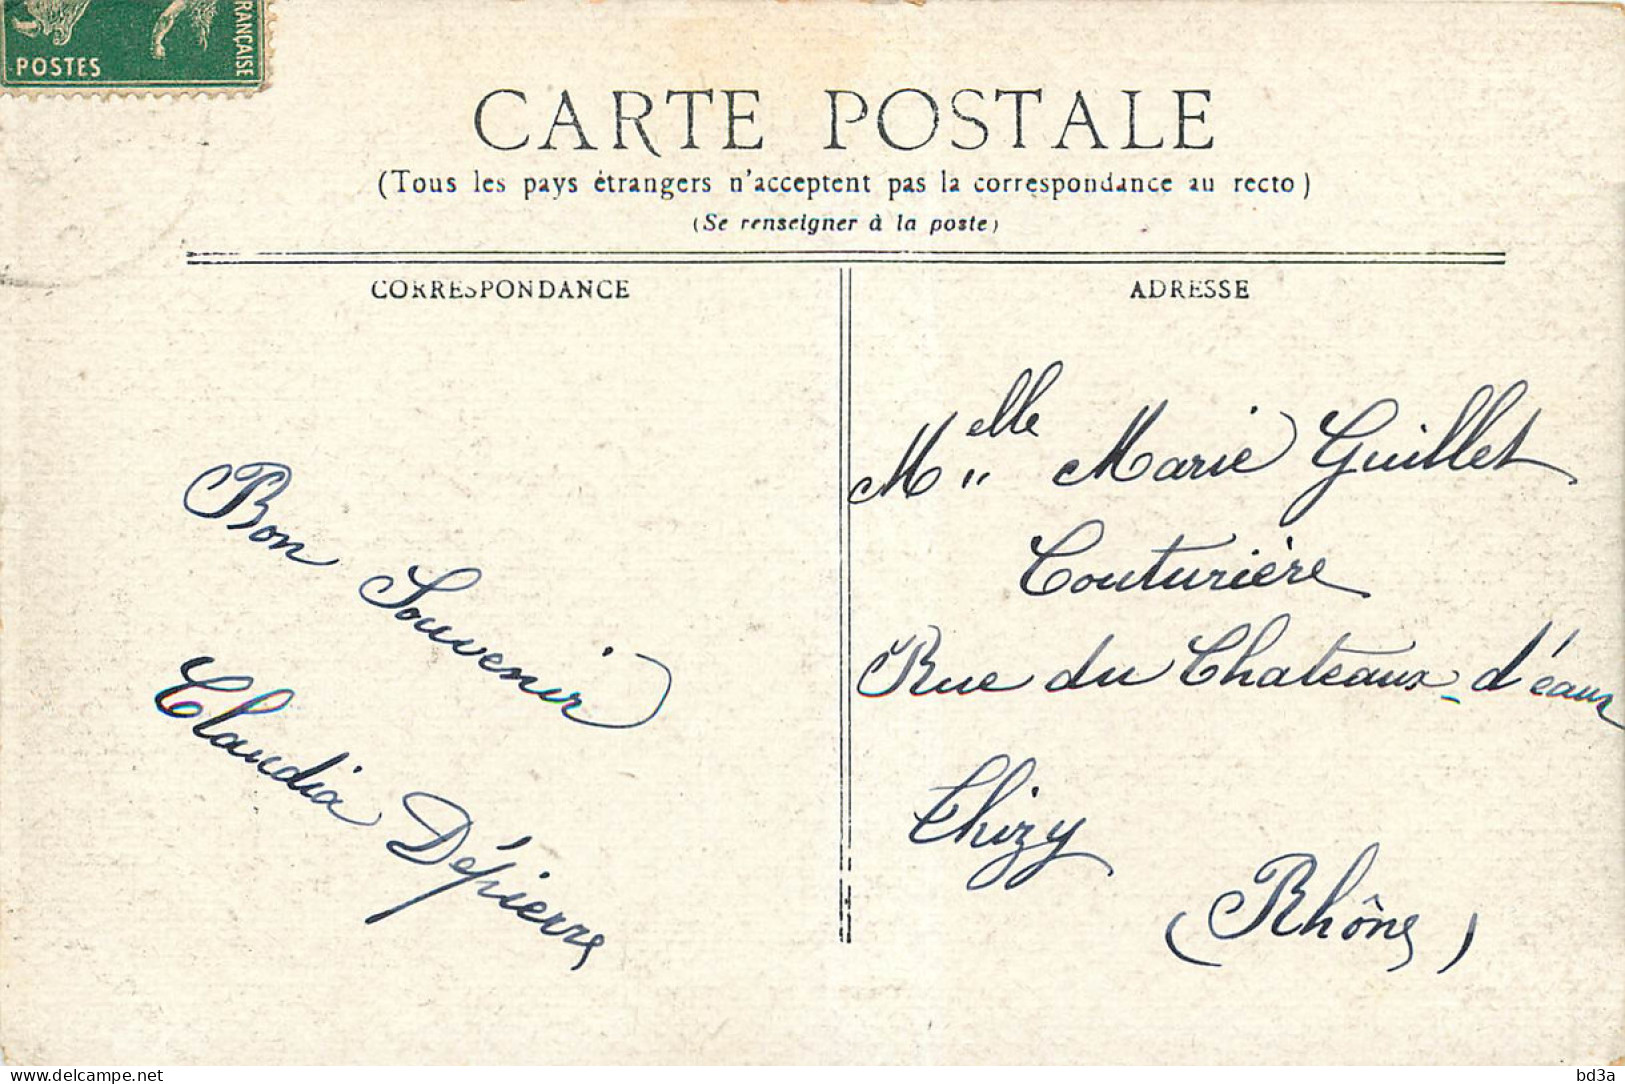 POSTES
FRANÇAISE
CARTE POSTALE
(Tous les pays étrangers n'acceptent pas la correspondance au recto)
(Se renseigner à la poste)
CORRESPONDANCE
Bon Souvenir
Claudia Dépierre
ADRESSE
Melle Marie Guillet
Couturière
Rue du Chateaux-d'éaux
Thizy
(Rhône)
www.delcampe.net
bd3a